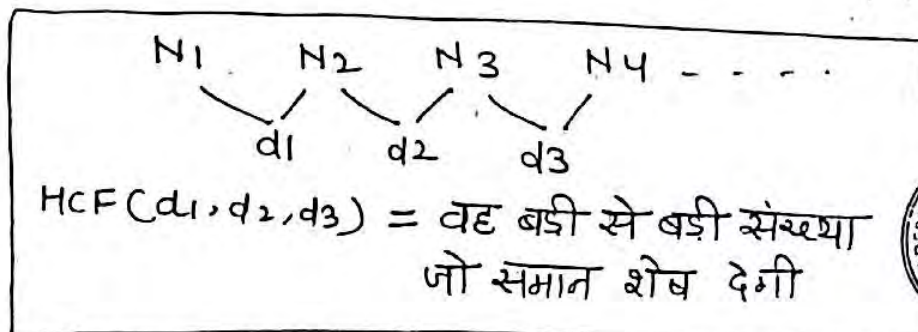 N1 N2 N3 N4 - - - .
d1 d2 d3
HCF(d1,d2,d3) = वह बडी से बड़ी संख्या
जो समान शेष देगी